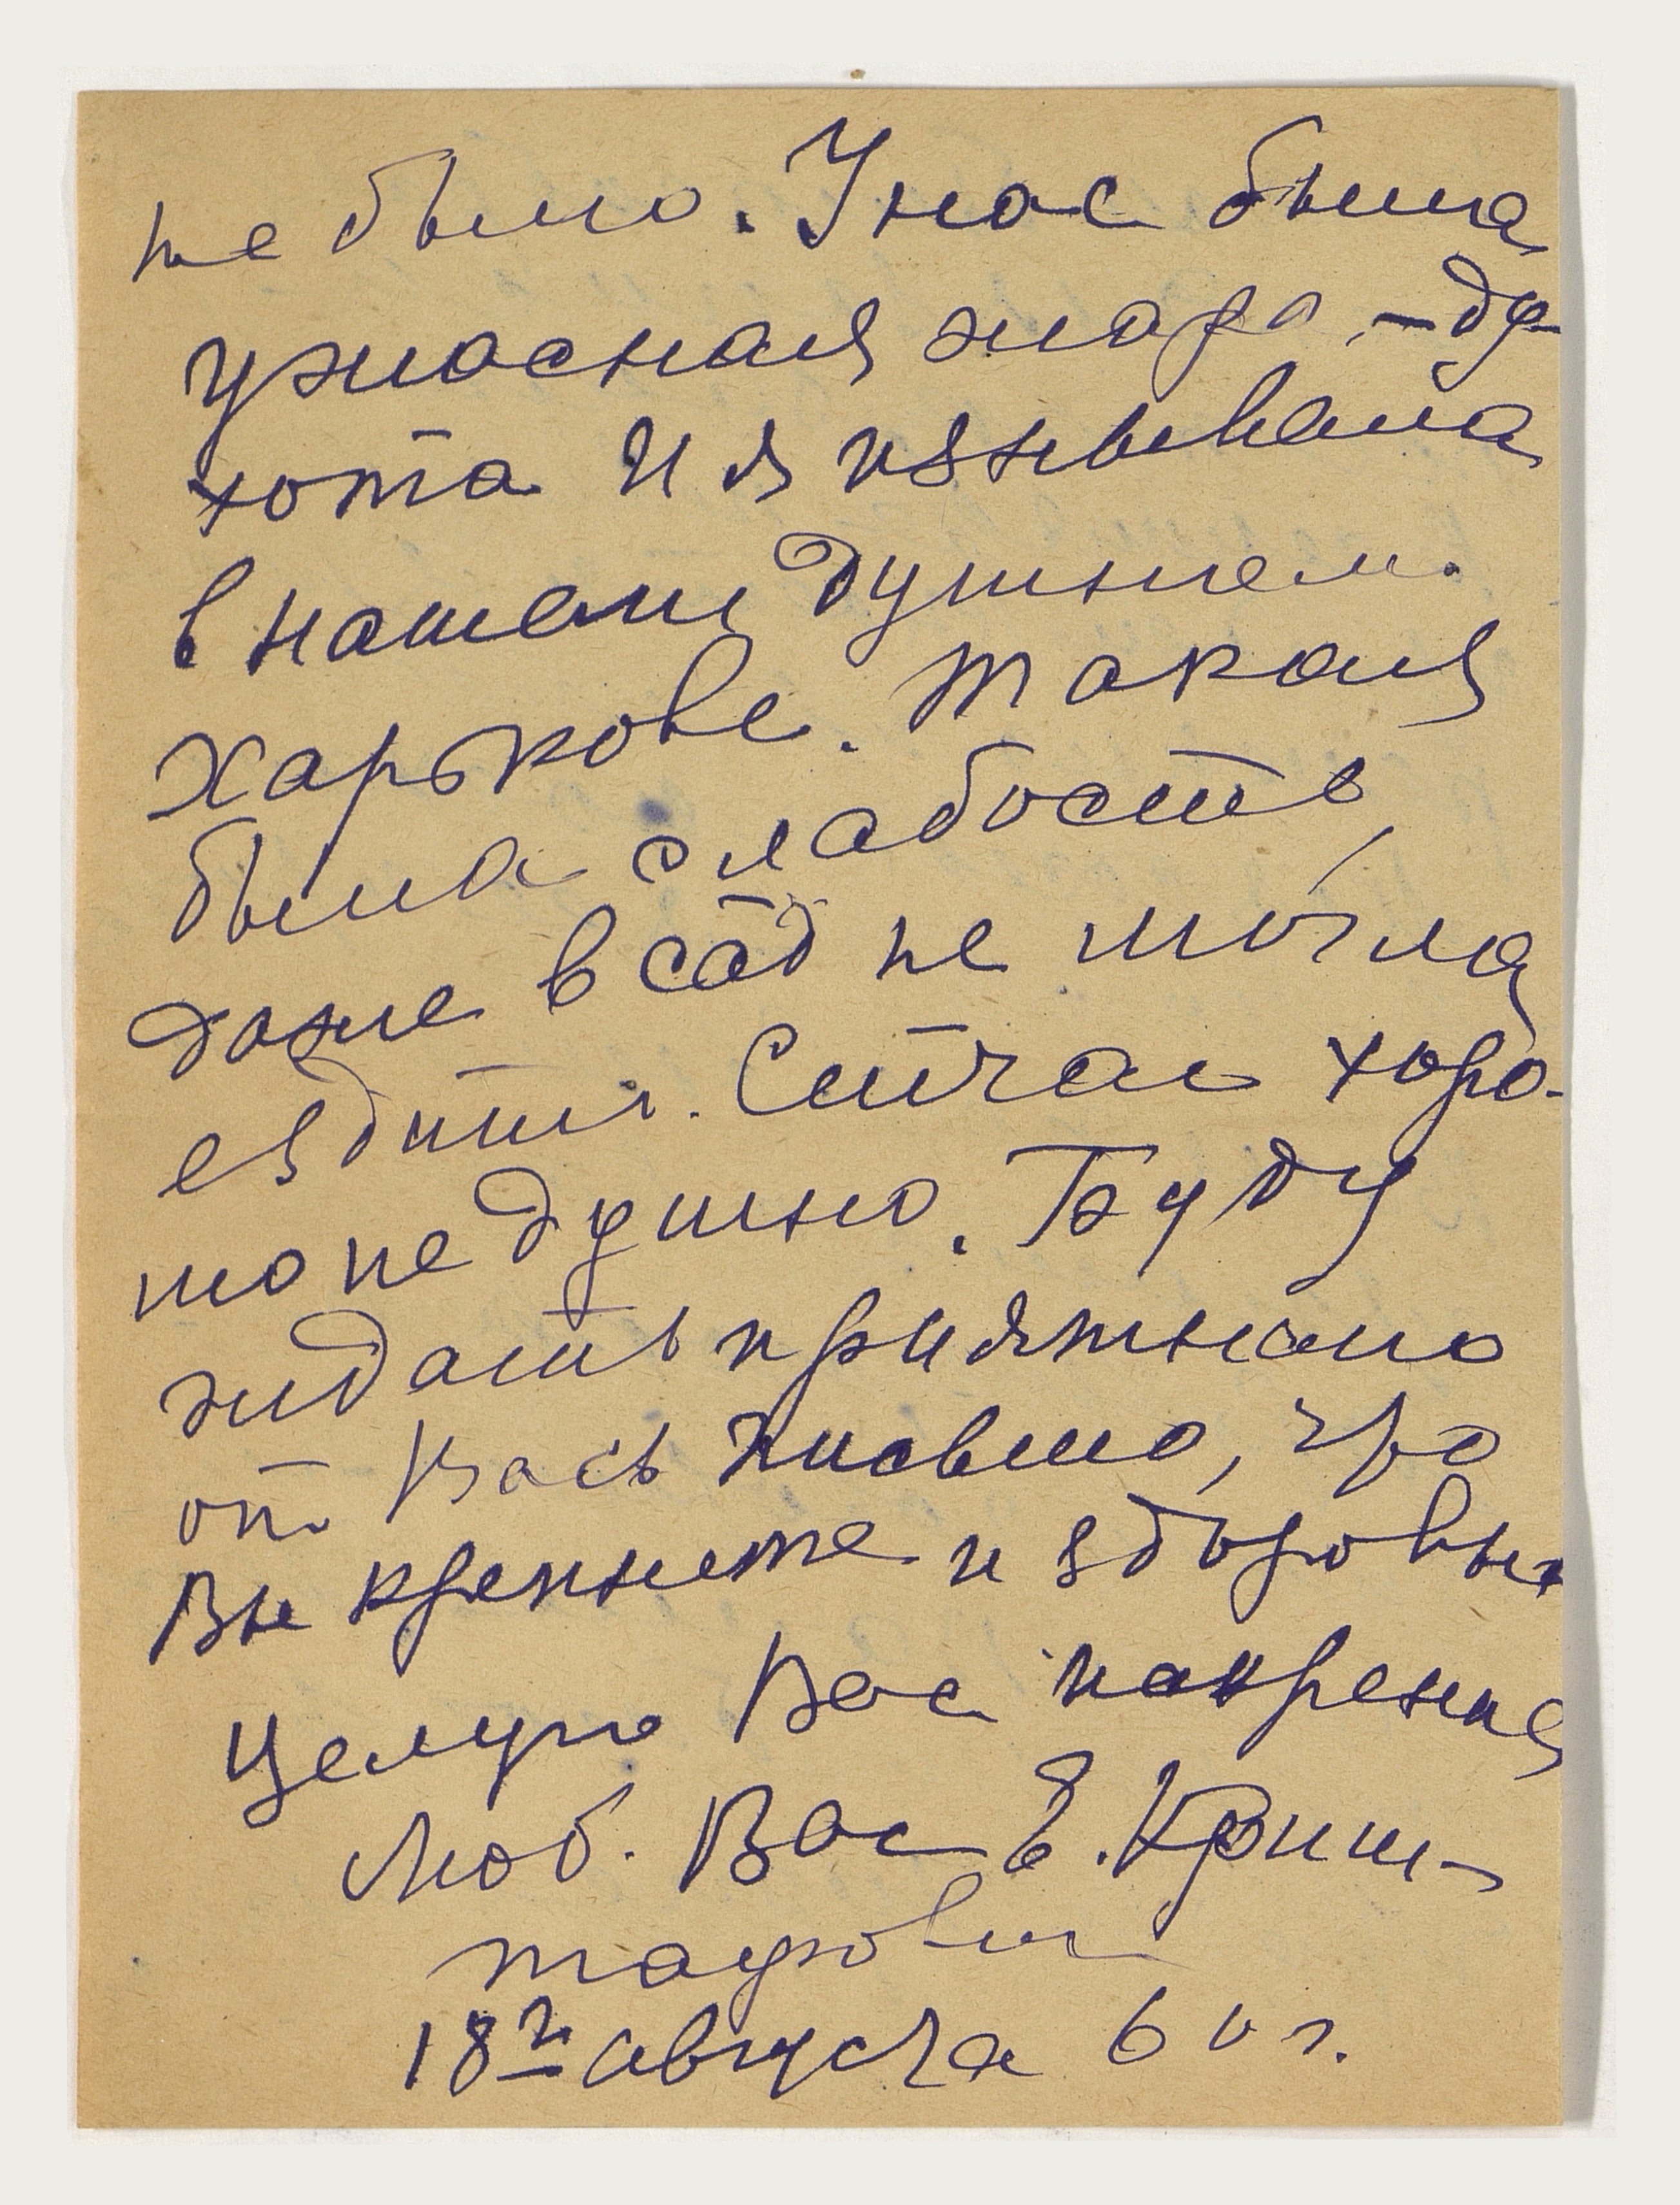 не было. У нас была
ужасная жара – ду-
хота и я изнывала
в нашем душном
Харькове. Такая
была слабость,
даже в сад не могла
ездить. Сейчас хоро-
шо не душно. Буду
ждать приятного
от Вась письмо, что
Вы крепните и здоровы
Целую Вас накрепко
Люб. Вас Е. Криш-
18го августа 60 г.